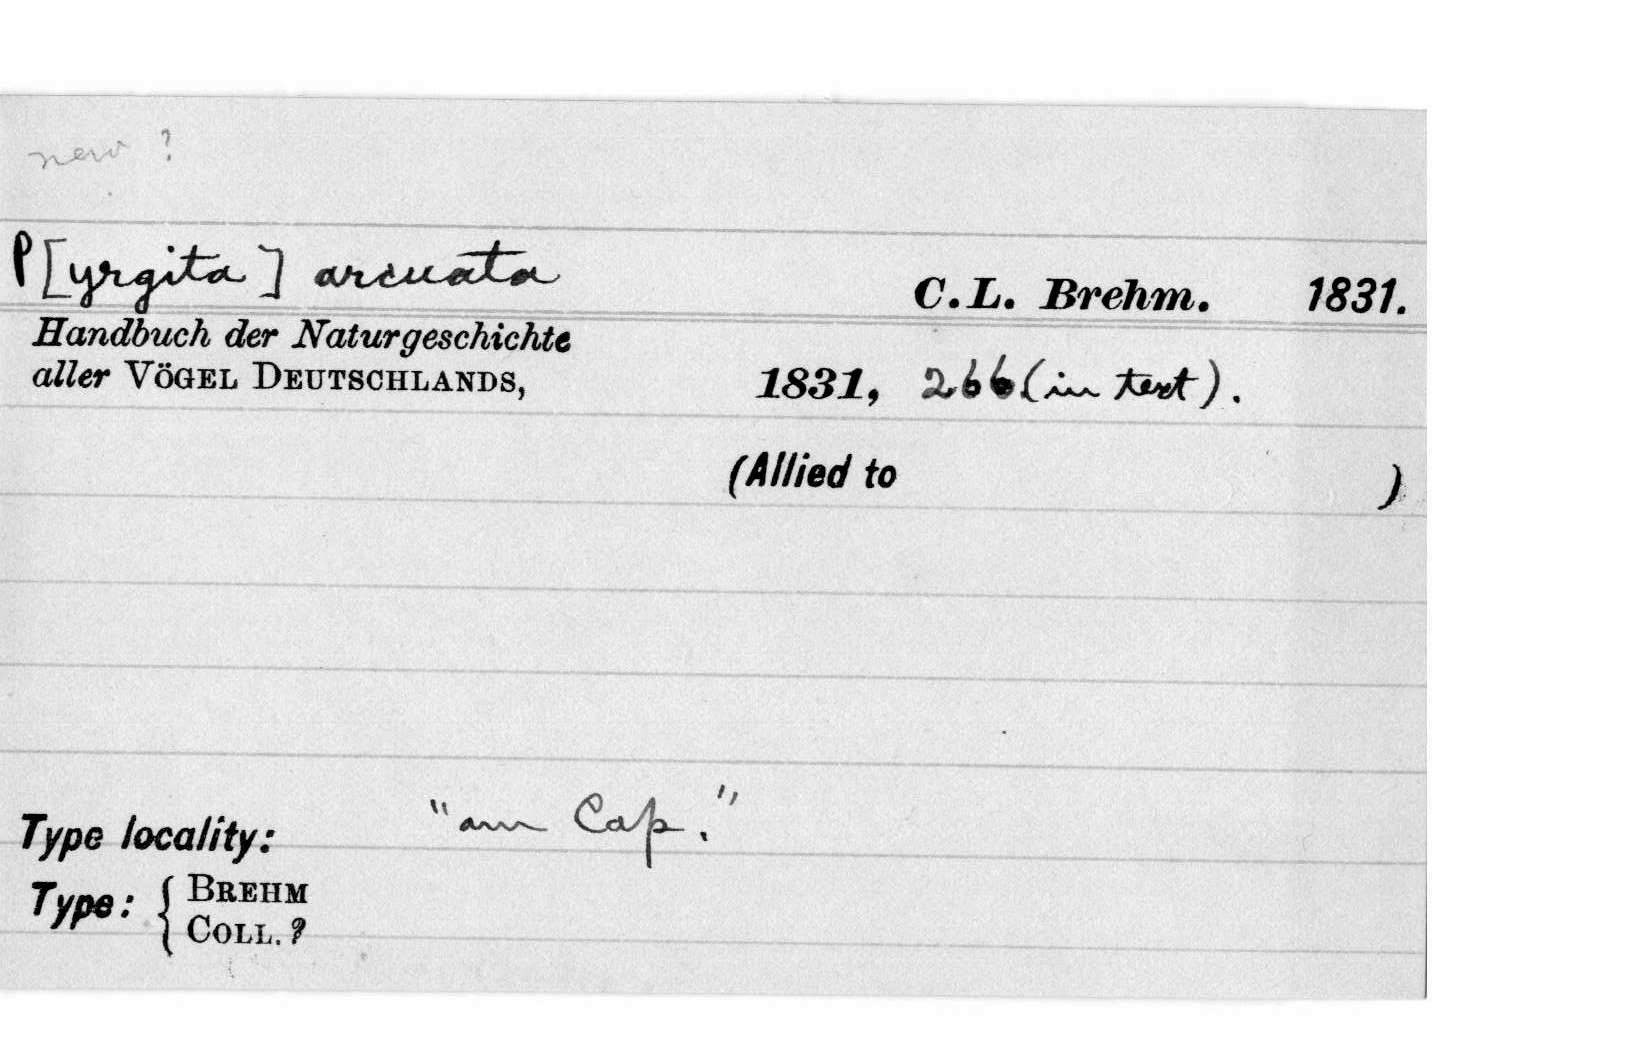 new ?
P[yrgita] arcuata C.L. Brehm. 1831.
Handbuch der Naturgeschichte
aller VÖGEL DEUTSCHLANDS, 1831, 266 (in text).
(Allied to )
Type locality: "am Cap."
Type: { BREHM
COLL. ?